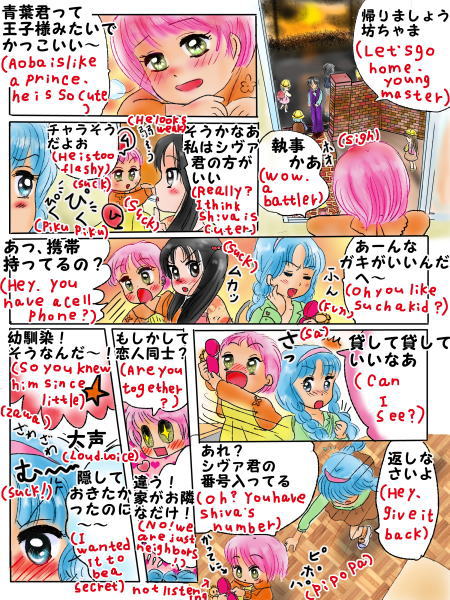 帰りましょう
坊ちゃま
(Let's go
home.
young
master)
(sigh)
執事
かあ
(wow.
a
battler)
青葉君って
王子様みたいで
かっこいい〜
(Aoba is like
a prince.
he is so cute)
そうかなあ
私はシヴァ
君の方が
いい
(Really?
I think
Shiva is
cuter)
(He looks
weak)
弱そう
チャラそう
だよお
(He is too
flashy)
(suck)
ぴく
ぴく
(Piku Piku)
(suck)
あーんな
ガキがいいんだ
へ〜
(Oh you like
such a kid?)
ふん
(Fun)
(suck)
ムカッ
あっ、携帯
持ってるの?
(Hey. you
have a cell
phone?)
貸して貸して
いいなあ
(Can
I
see?)
さっ
(sa)
もしかして
恋人同士?
(Are you
together
?)
違う!
家がお隣
なだけ!
(No! we
are just
neighbors
!)
幼馴染!
そうなんだ〜!
(So you knew
him since
little)
(zawa)
ざわ
ざわ
大声
(Loud voice)
む〜
(suck!)
隠して
おきたかっ
たのに
〜
(I
wanted
it to
be a
secret)
返しな
さいよ
(Hey,
give it
back)
あれ?
シヴァ君の
番号入ってる
(oh? you have
Shiva's
number)
ピ
ポ
パ
(Pi po pa)
not listeng